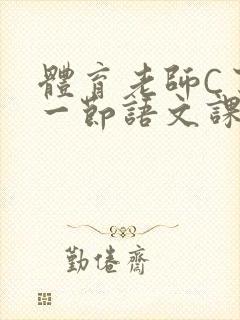 體育老師C
一節語文課
勤倦齋